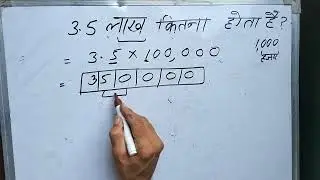 3.5 लाख कितना होता है?
= 3.5 × 100,000
1,000
हजार
= 350000